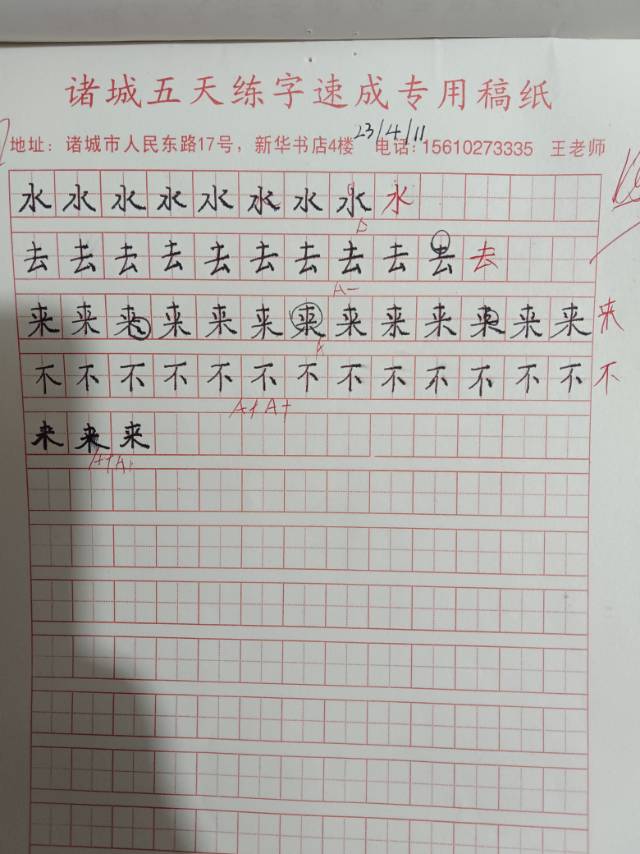 诸城五天练字速成专用稿纸
23/4/11
地址：诸城市人民东路17号，新华书店4楼 电话：15610273335 王老师
水水水水水水水水水
去去去去去去去去去去去
A-
来来来来来来来来来来来来来来
不不不不不不不不不不不不不不
A+ A+
来来来